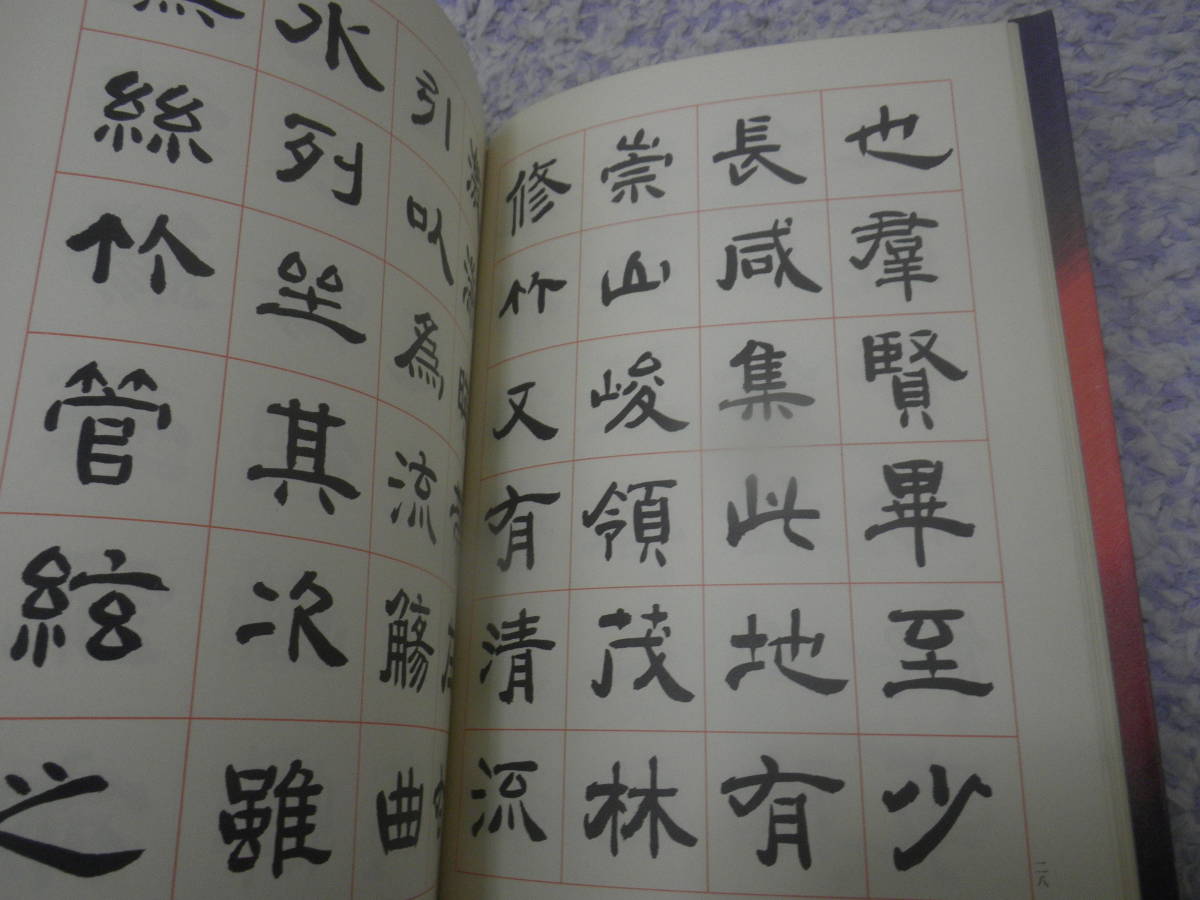 也羣賢畢至少
長咸集此地有
崇山峻領茂林
修竹又有清流
二八
引以爲流觴曲
水列坐其次雖
絲竹管絃之